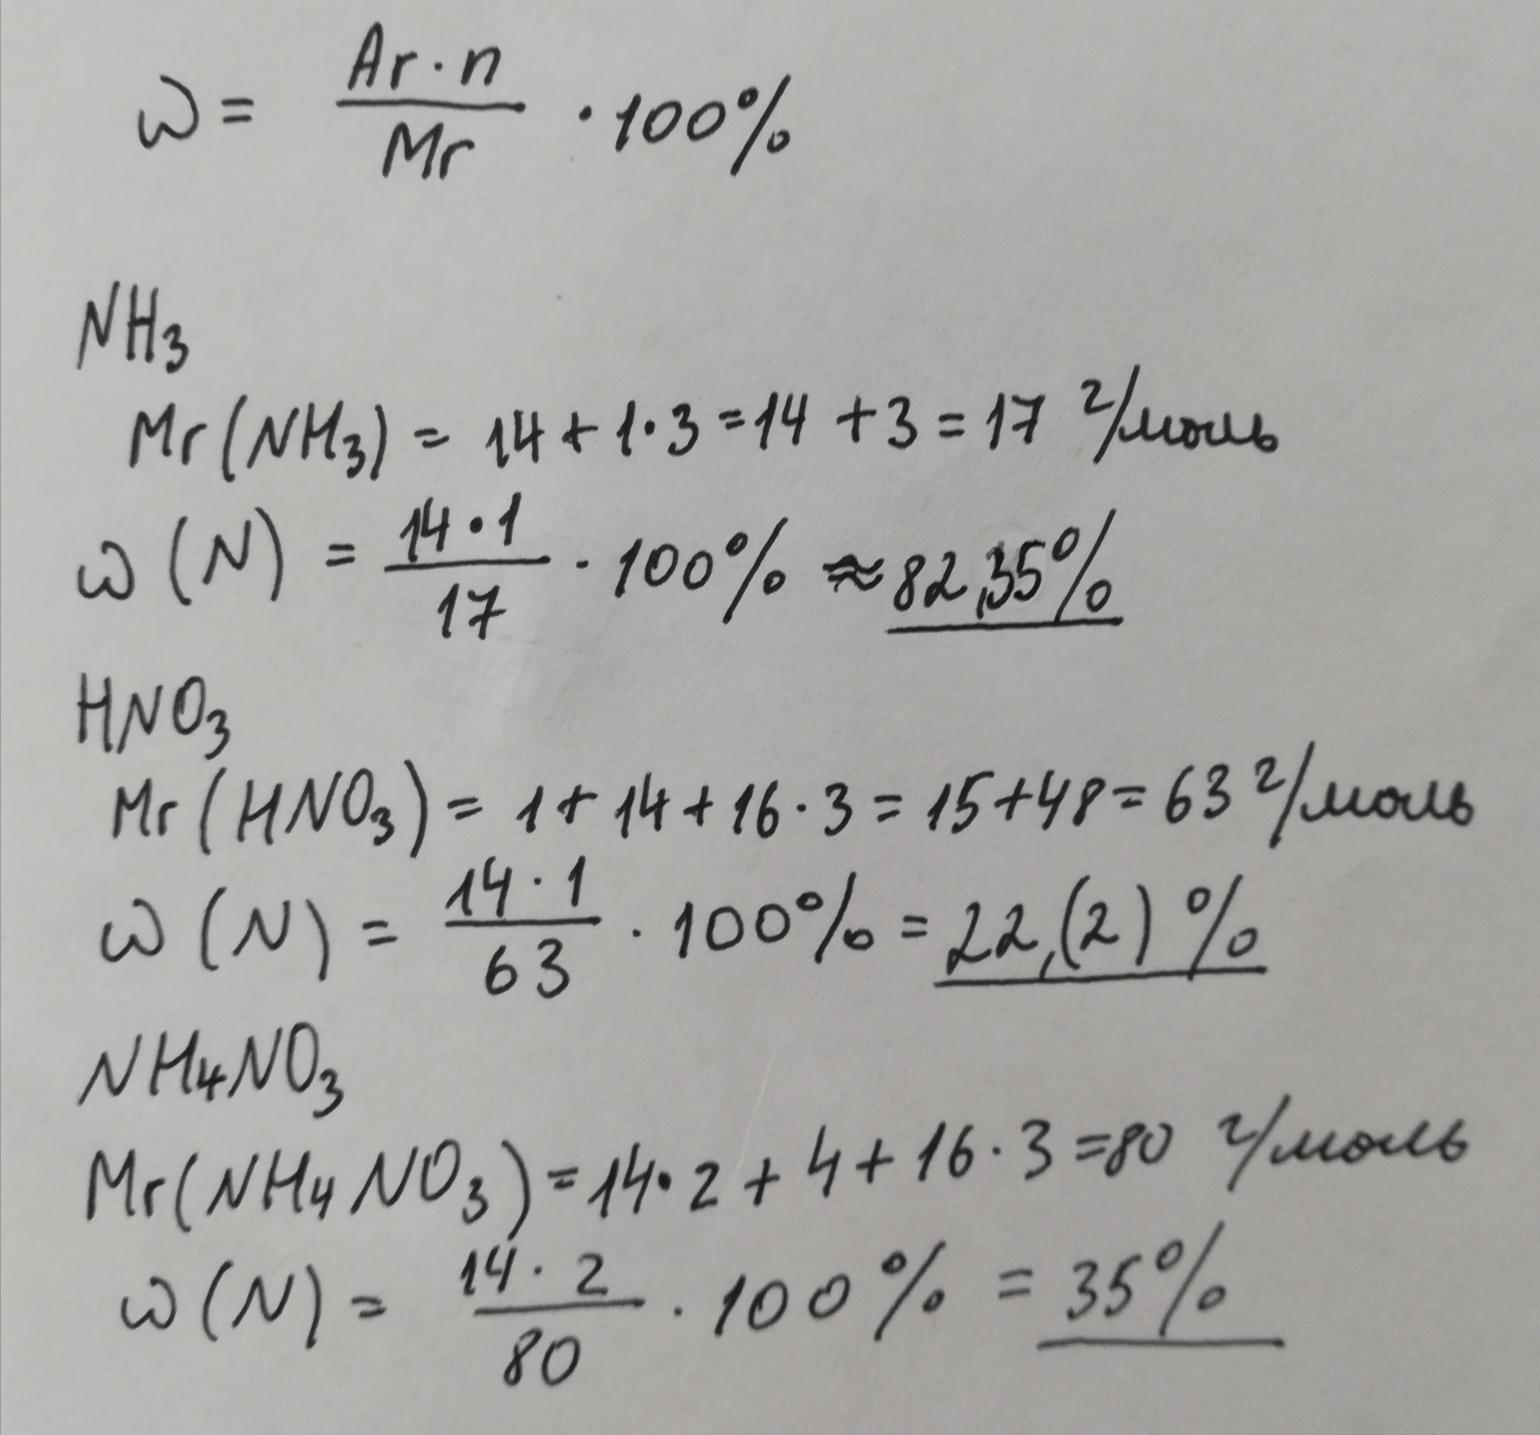 ω = Ar·n / Mr · 100%
NH₃
Mr(NH₃) = 14 + 1·3 = 14 + 3 = 17 г/моль
ω(N) = 14·1 / 17 · 100% ≈ 82,35%
HNO₃
Mr(HNO₃) = 1 + 14 + 16·3 = 15 + 48 = 63 г/моль
ω(N) = 14·1 / 63 · 100% = 22,(2)%
NH₄NO₃
Mr(NH₄NO₃) = 14·2 + 4 + 16·3 = 80 г/моль
ω(N) = 14·2 / 80 · 100% = 35%